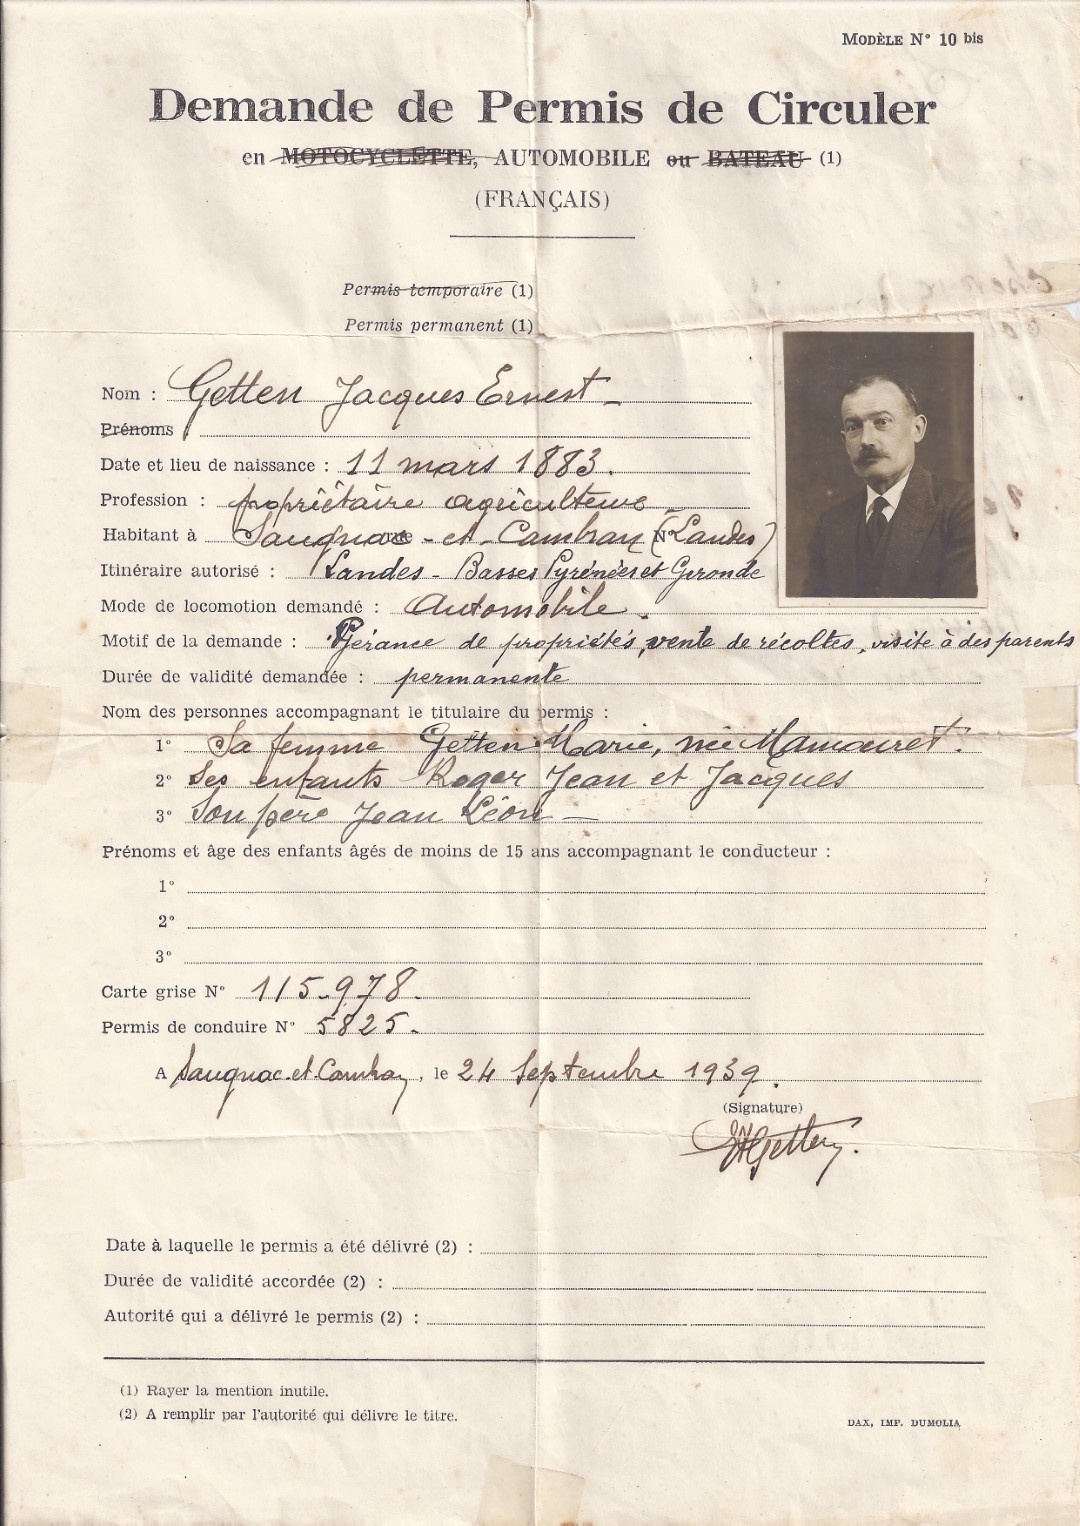 MODÈLE N° 10 bis
Demande de Permis de Circuler
en MOTOCYCLETTE, AUTOMOBILE ou BATEAU (1)
(FRANÇAIS)
Permis temporaire (1)
Permis permanent (1)
Nom : Getten Jacques Ernest
Prénoms :
Date et lieu de naissance : 11 mars 1883.
Profession : propriétaire agriculteur
Habitant à Saugnac-et-Cambran (Landes)
Itinéraire autorisé : Landes - Basses Pyrénées et Gironde
Mode de locomotion demandé : Automobile.
Motif de la demande : Gérance de propriétés, vente de récoltes, visite à des parents
Durée de validité demandée : permanente
Nom des personnes accompagnant le titulaire du permis :
1° Sa femme Getten Marie, née Mamouret.
2° Ses enfants Roger Jean et Jacques
3° Son père Jean Léon -
Prénoms et âge des enfants âgés de moins de 15 ans accompagnant le conducteur :
1°
2°
3°
Carte grise N° 115-978.
Permis de conduire N° 5825.
A Saugnac-et-Cambran, le 24 Septembre 1939.
(Signature)
Getten.
Date à laquelle le permis a été délivré (2) :
Durée de validité accordée (2) :
Autorité qui a délivré le permis (2) :
(1) Rayer la mention inutile.
(2) A remplir par l'autorité qui délivre le titre.
DAX, IMP. DUMOLIA